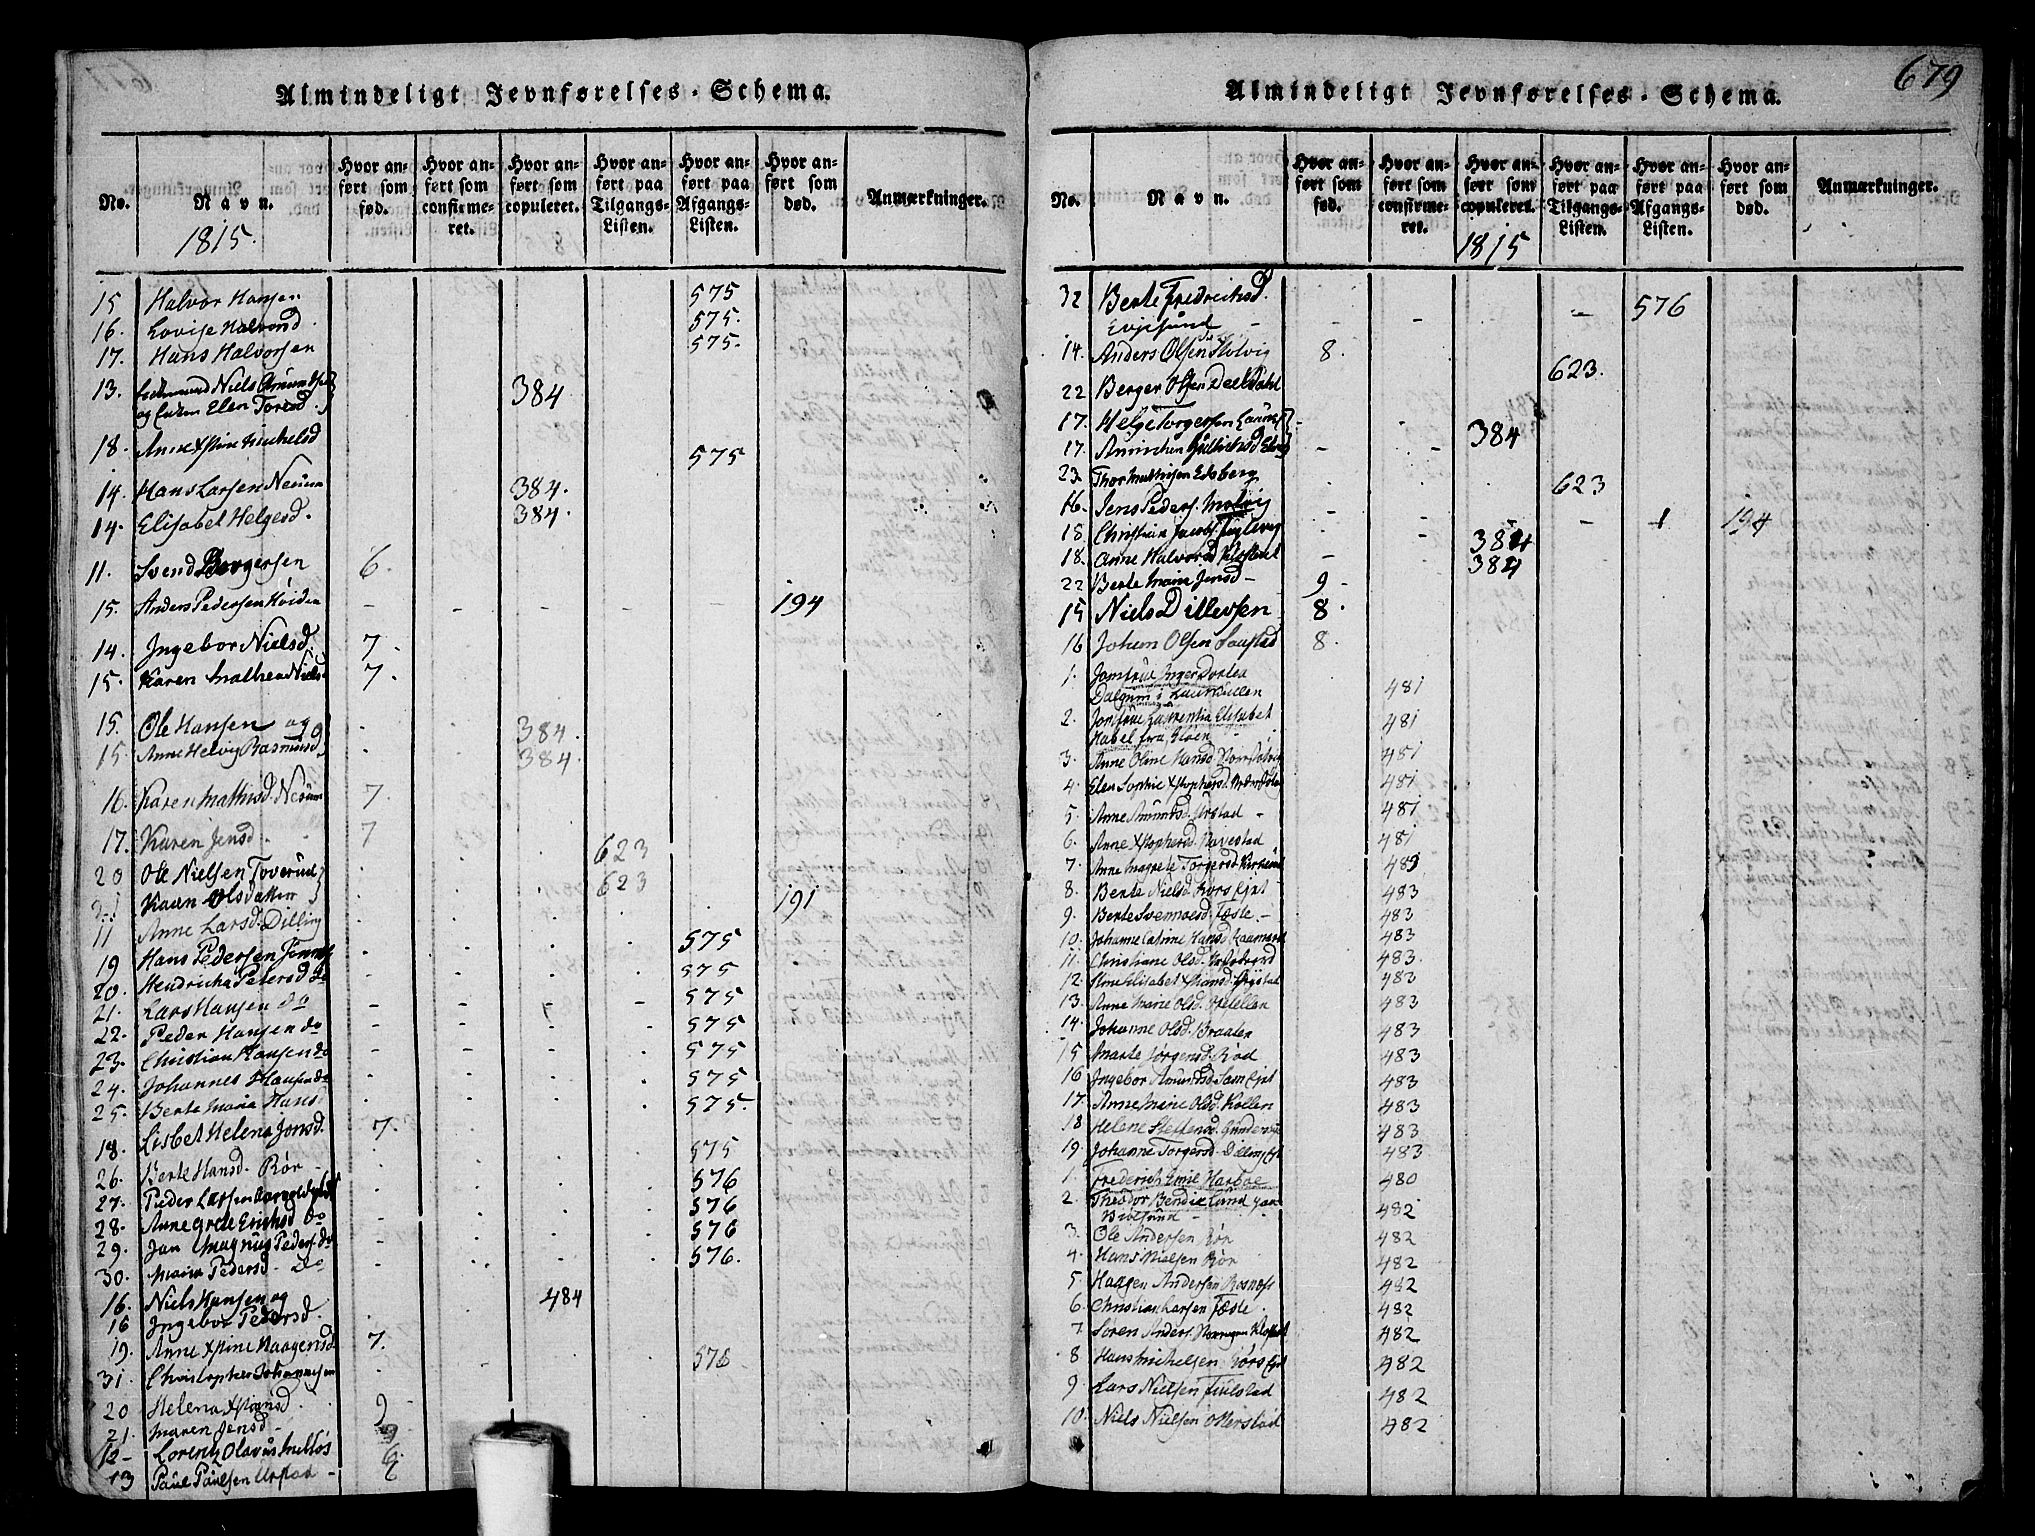 Almindeligt Jevnførelses-Schema.
No. Navn. Hvor anført som fød. Hvor anført som confirmeret. Hvor anført som copuleret. Hvor anført paa Tilgangs-Listen. Hvor anført paa Afgangs-Listen. Hvor anført som død. Anmærkninger.
1815.
15 Halvor Hansen 575
16. Lovise Halvorsd. 575.
17. Hans Halvorsen 575.
13. Niels
og Elen Toresd. 384
18. Anne Xstine Michelsd 575
14. Hans Larsen Nesum 384.
14. Elisabet Helgesd. 384.
11. Svend Bergersen 6.
15. Anders Pedersen 194
14. Ingebor Nielsd. 7.
15. Karen Mathea Nielsd 7.
15. Ole Hansen og 384.
15. Anne Helvig Rasmusd 384.
16. Karen Mathisd. Nesum 7.
17. Karen Jensd. 7
20 Ole Nielsen Toverud 623
21 Karen Olsdatter 623
11 Anne Larsd. Dilling 191
19 Hans Pedersen 575
20. Hendricha Petersd do 575
21. Lars Hansen do 575
22. Peder Hansen do 575
23. Christian Hansen do 575
24. Johannes Hansen do 575
25. Berte Maria Hans 575.
18. Lisbet Helena Jonsd. 7.
26. Berte Hansd. Rør 575
27. Peder Larsen 576
28. Anne Grete Erichsd do 576
29. Jan Magnus Peders. do 576
30. Maria Pedersd. do 576.
16. Niels Hansen og 484
16 Ingebor Pedersd.
19. Anne Xstine Haagensd 7.
31. Christopher Johannesen 576
20 Helena Xstiansd. 9
21. Maren Jensd. 9
12 Lorentz Olavus
13 Paul Paulsen Urstad
Almindeligt Jevnførelses-Schema.
679
No. Navn. Hvor anført som fød. Hvor anført som confirmeret. Hvor anført som copuleret. Hvor anført paa Tilgangs-Listen. Hvor anført paa Afgangs-Listen. Hvor anført som død. Anmærkninger.
1815
32 Berte Fredrichsd.
Evjesund 576
14. Anders Olsen 8.
22 Berger Olsen 623.
17. Helge Torgersen
17. Anniken 384
23. Thor Mathisen Edsberg 623
16. Jens Peders. 194
18. Christian Jacobs. Fuglevig 384
18. Anne Halvorsd. 384
22 Berte Marie Jensd 9
15 Niels Dillevsen 8.
16 Johan Olsen 8.
1. Jomfrue Inger Dortea
Dalgum i 481
2. Jomfrue Laurentia Elisabet
Habel fra 481
3. Anne Oline Hansd. 481
4. Elen Sophie Xstophersd. 481
5. Anne Amundsd. Urstad 481
6. Anne Xstophersd. Navestad 481
7. Anne Magrete Torgersd. 481
8. Berte Nielsd. 483
9. Berte Svennaesd. Tæste 483
10. Johanne Catrine Hansd. 483
11. Christiane Olsd. 483.
12. Anne Elisabet Xstiansd. 483
13. Anne Marie Olsd. 483
14. Johanne Olsd. Braaten 483
15 Marte Jørgensd. Rød 483
16 Ingebor Amundsd. 483
17. Anne Marie Olsd. Kollen 483
18 Helene Steffensd. 483
19. Johanne Torgersd. Dilling 483
1. Frederich Harboe 480
2. Theodor Bendix Lund
Bilesund 482
3. Ole Andersen Rør 482
4. Hans Nielsen Rør 482
5 Haagen Andersen 482
6. Christian Larsen Tæste. 482
7 Søren Anders. 482
8 Hans Michelsen 482
9 Lars Nielsen Fiulstad 482
10. Niels Nielsen Otterstad 482